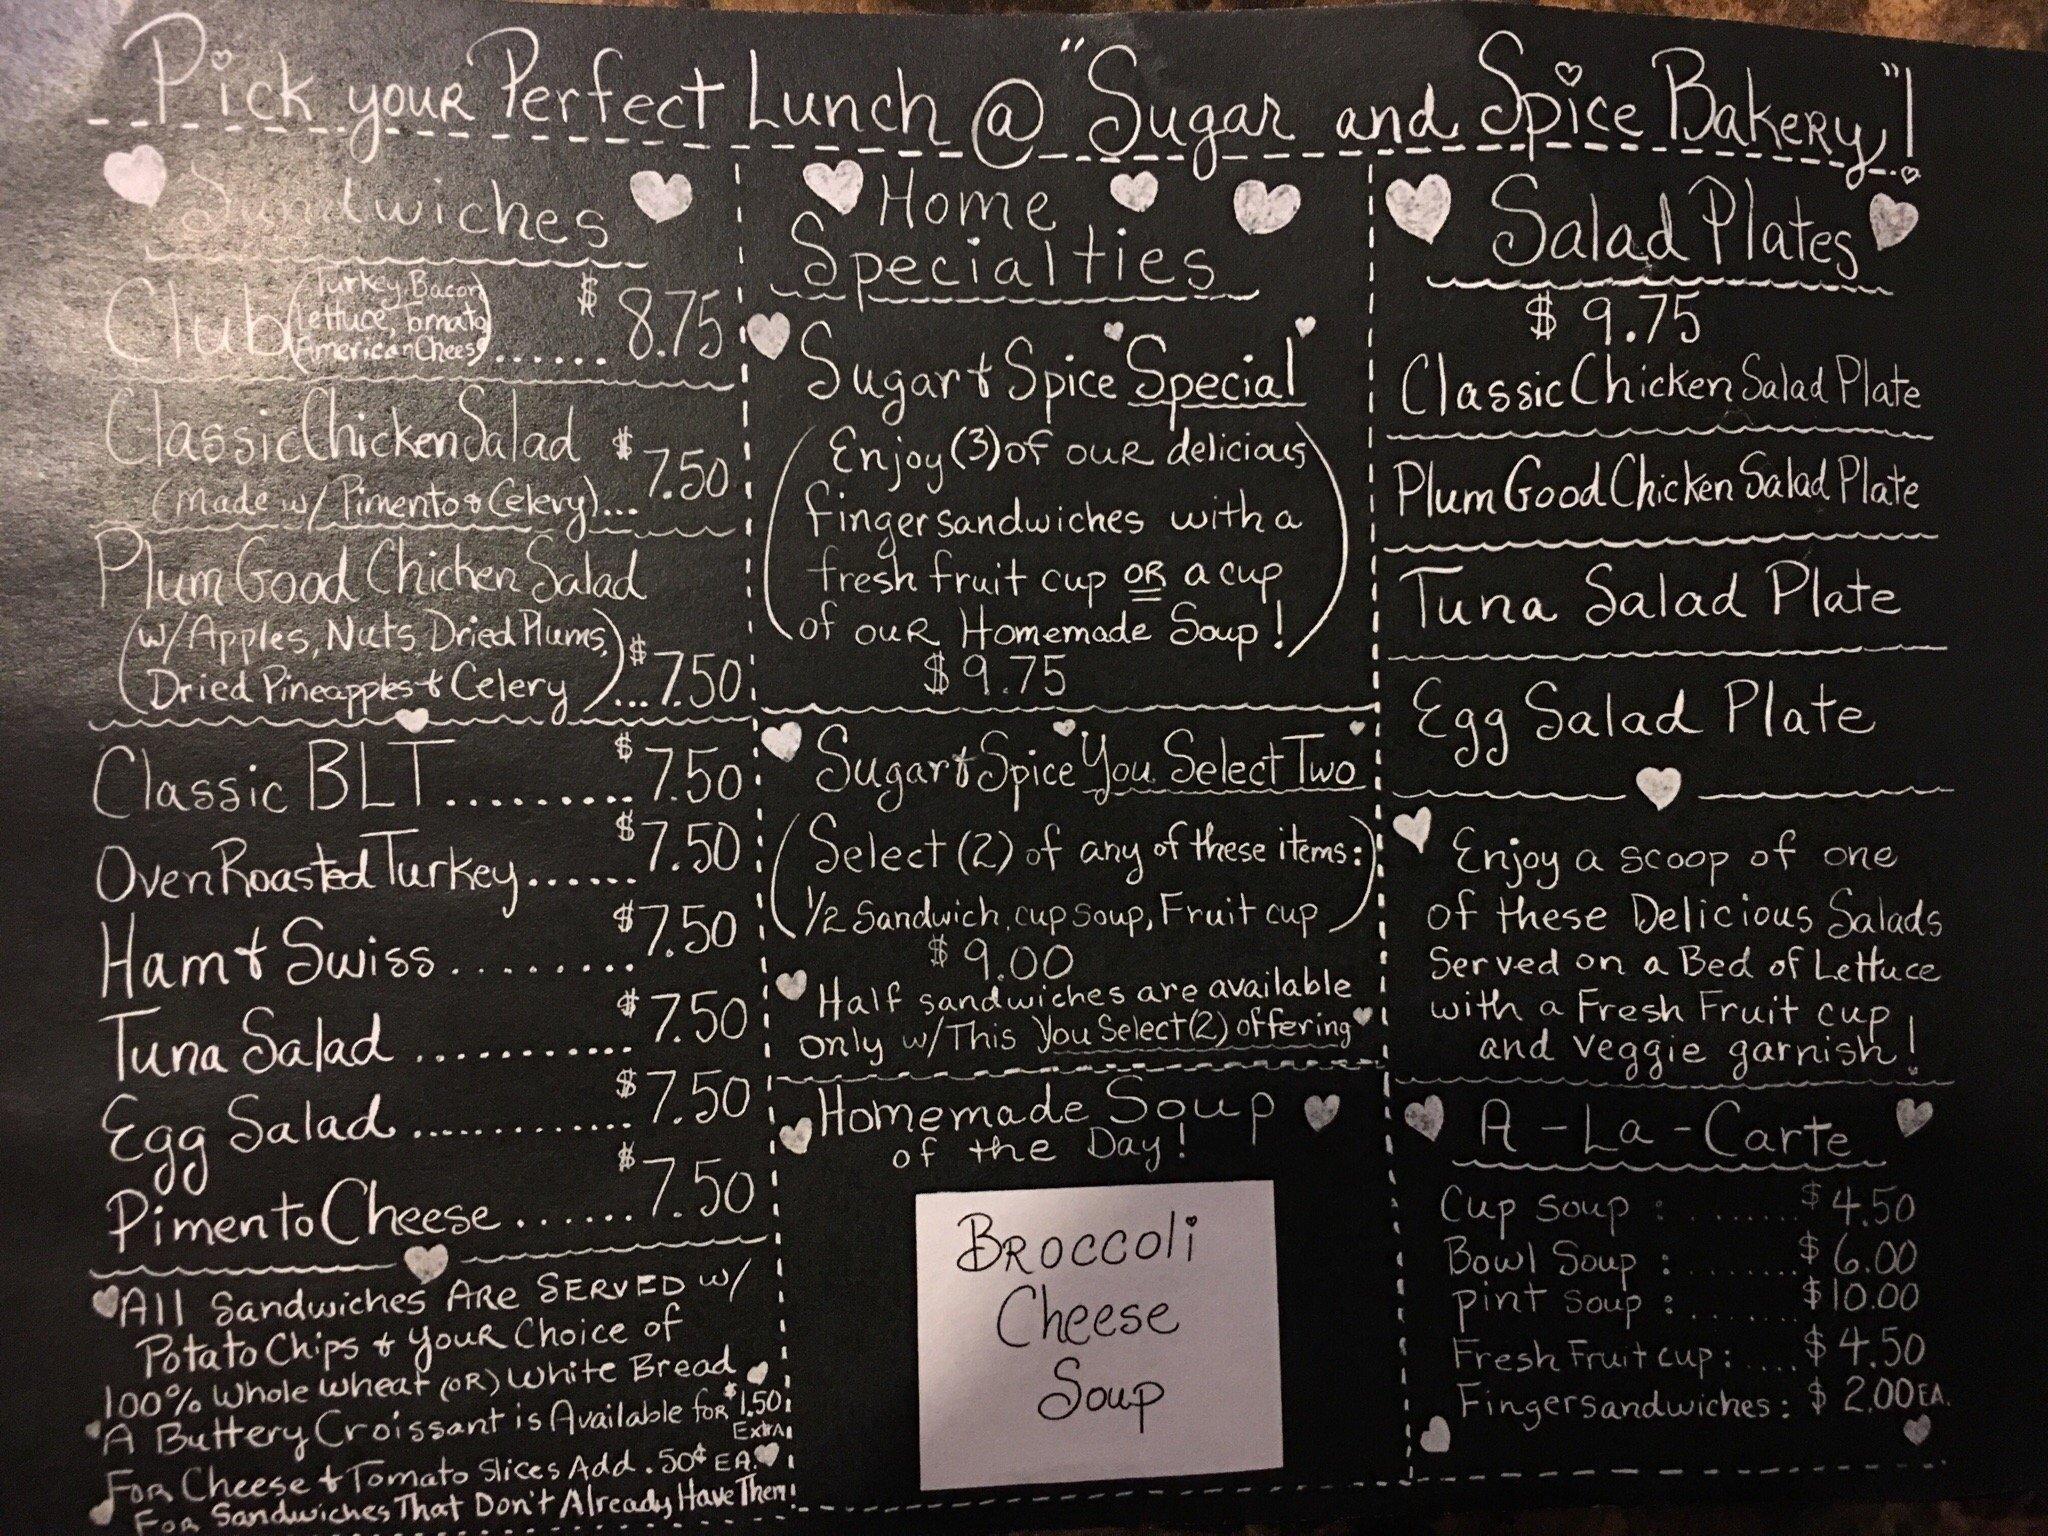 Pick your Perfect Lunch @ "Sugar and Spice Bakery"!
Sandwiches
Club (Turkey, Bacon
Lettuce, Tomato
American Cheese) ...... $8.75
Classic Chicken Salad
(made w/ Pimento & Celery)... $7.50
Plum Good Chicken Salad
(w/Apples, Nuts, Dried Plums,
Dried Pineapples & Celery)... $7.50
Classic BLT......... $7.50
Oven Roasted Turkey...... $7.50
Ham & Swiss......... $7.50
Tuna Salad ............ $7.50
Egg Salad............. $7.50
Pimento Cheese....... $7.50
All Sandwiches Are Served w/
Potato Chips & your Choice of
100% Whole Wheat (or) White Bread
A Buttery Croissant is Available for $1.50
Extra
For Cheese & Tomato slices Add .50¢ EA.
For Sandwiches That Don't Already Have Them!
Home
Specialties
Sugar & Spice Special
(Enjoy (3) of our delicious
finger sandwiches with a
fresh fruit cup OR a cup
of our Homemade Soup!)
$9.75
Sugar & Spice You Select Two
(Select (2) of any of these items:
1/2 Sandwich, cup soup, Fruit cup)
$9.00
Half sandwiches are available
only w/This You Select (2) offering
Homemade Soup
of the Day!
Broccoli
Cheese
Soup
Salad Plates
$9.75
Classic Chicken Salad Plate
Plum Good Chicken Salad Plate
Tuna Salad Plate
Egg Salad Plate
Enjoy a scoop of one
of these Delicious Salads
Served on a Bed of Lettuce
with a Fresh Fruit cup
and veggie garnish!
A-La-Carte
Cup Soup : ....... $4.50
Bowl Soup : ........ $6.00
pint soup : ........ $10.00
Fresh Fruit cup: .... $4.50
Finger sandwiches: $2.00 EA.